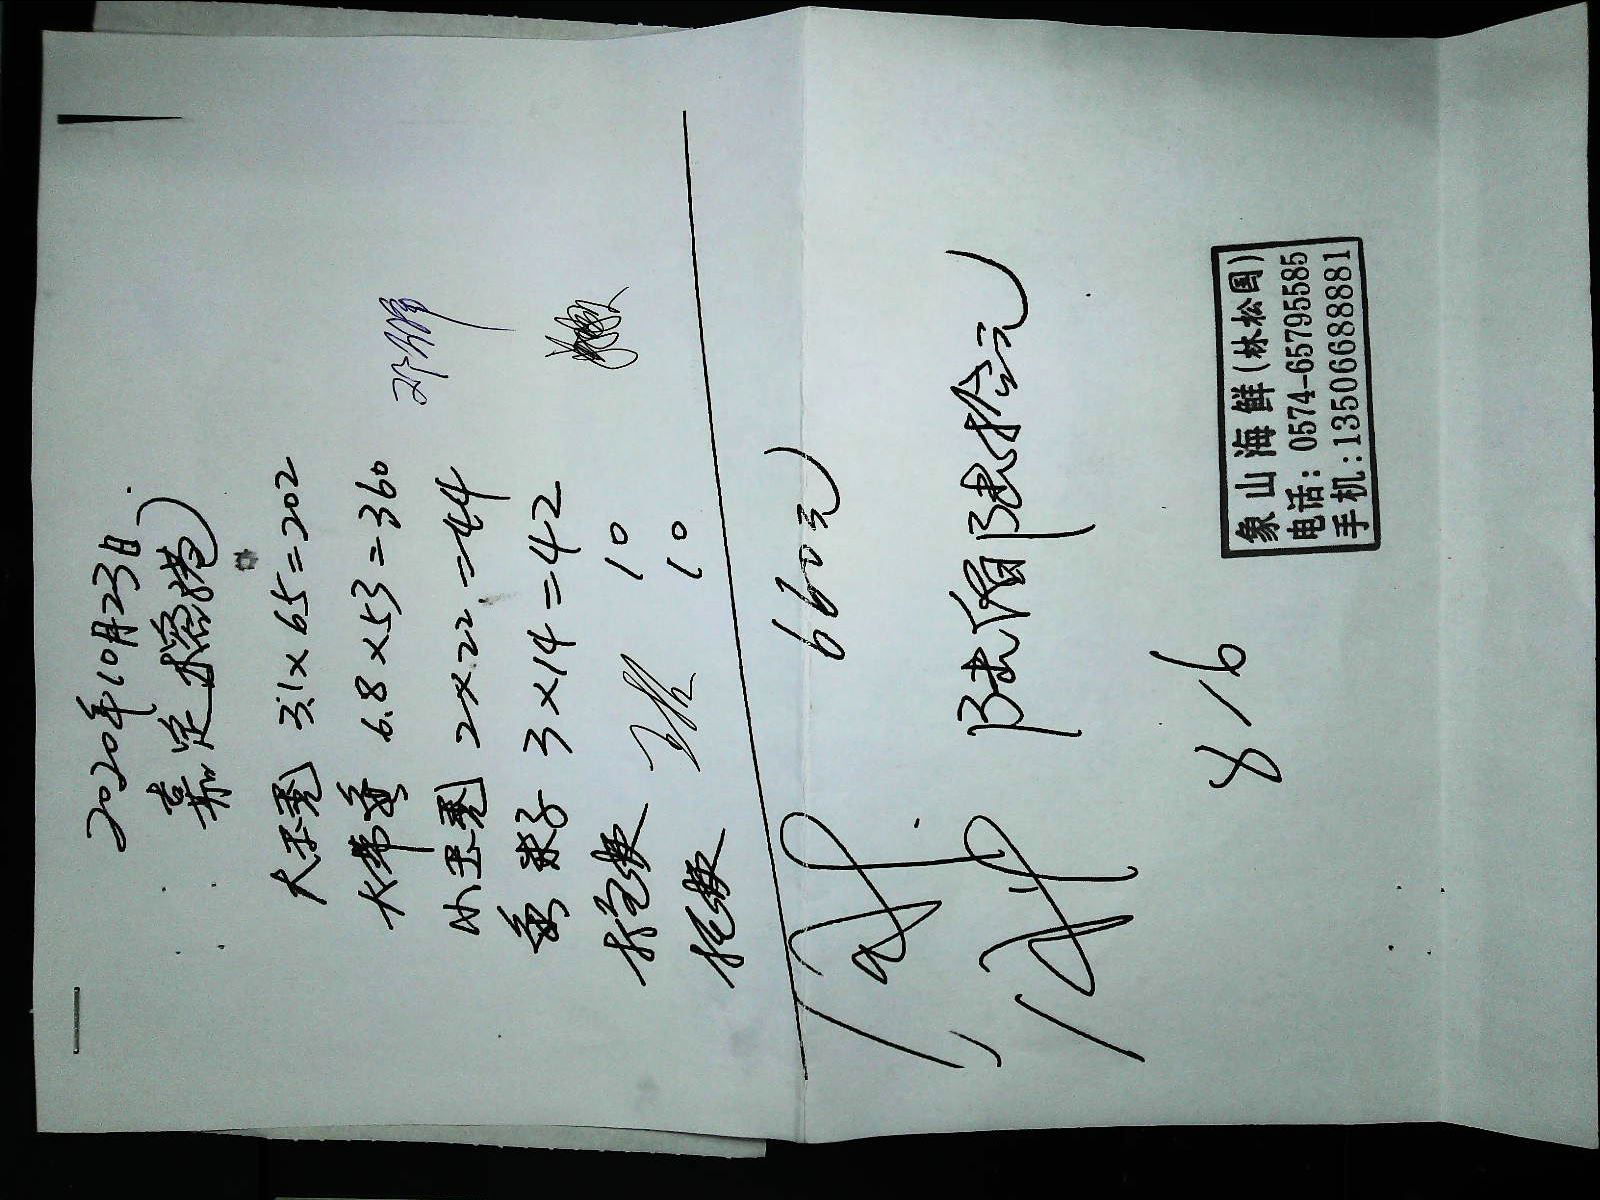 2020年10月23日
嘉定
大玉秃 3.1×65=202
大带鱼 6.8×53=360
小玉秃 2×22=44
鱼末子 3×14=42
打包费 10
托费 10
660元
陆佰陆拾元
816
象山海鲜(林松国)
电话: 0574-65795585
手机:13506688881